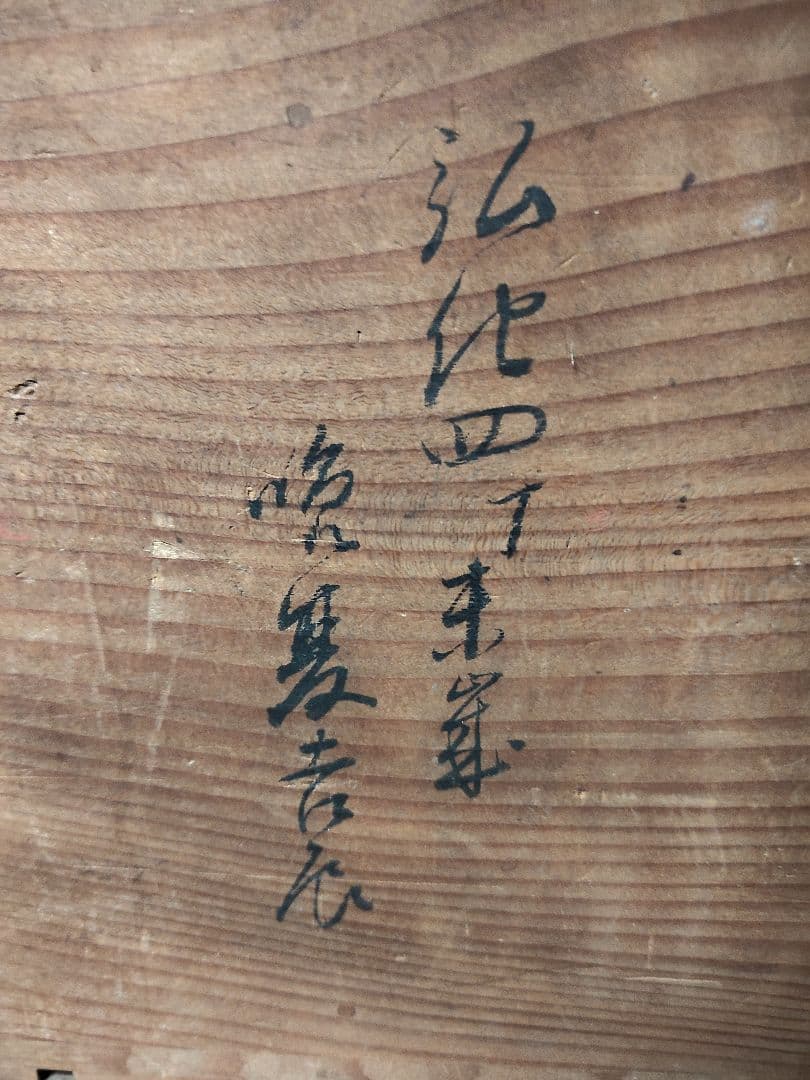 弘化四丁未歳
夏吉辰